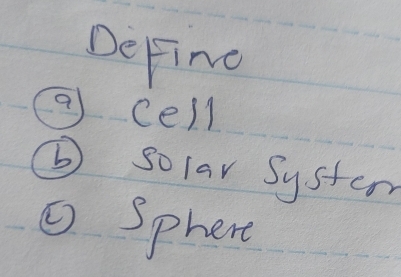 Define
(a) Cell
(b) Solar System
(c) Sphere